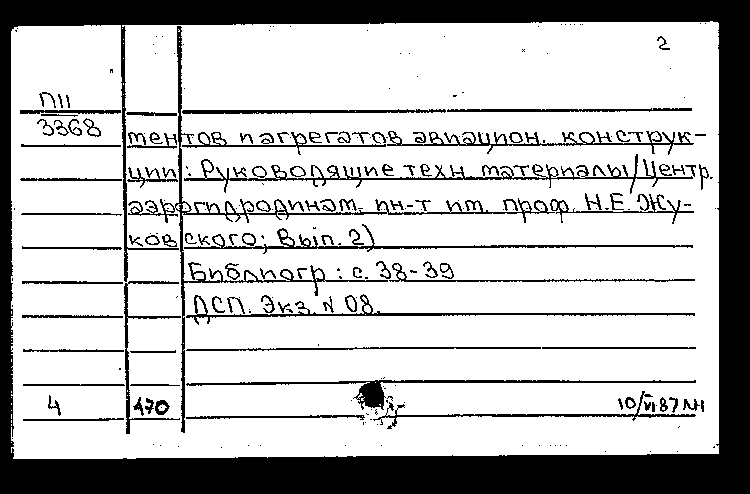 2
ПII
3368
тентов и агрегатов авиацион. конструк-
ции: Руководящие техн. материалы/Центр.
аэрогидродинам. ин-т им. проф. Н.Е. Жу-
ковского; Вып. 2)
Библиогр: с. 38-39
ДСП. Экз. N 08.
4 470 10/VI 87 лн